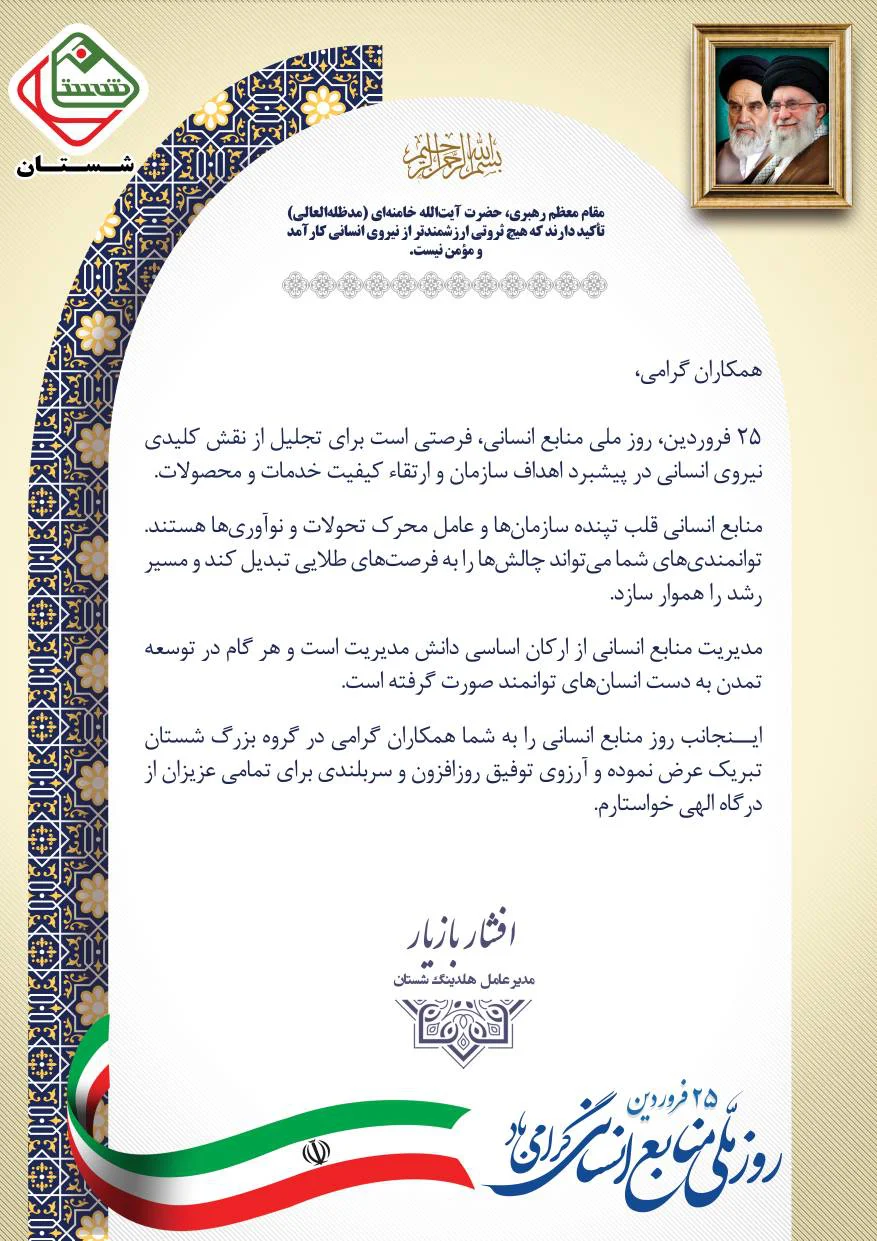 شستا
شــســتــان
بسم الله الرحمن الرحیم
مقام معظم رهبری، حضرت آیت‌الله خامنه‌ای (مدظله‌العالی)
تأکید دارند که هیچ ثروتی ارزشمندتر از نیروی انسانی کارآمد
و مؤمن نیست.
همکاران گرامی،
۲۵ فروردین، روز ملی منابع انسانی، فرصتی است برای تجلیل از نقش کلیدی
نیروی انسانی در پیشبرد اهداف سازمان و ارتقاء کیفیت خدمات و محصولات.
منابع انسانی قلب تپنده سازمان‌ها و عامل محرک تحولات و نوآوری‌ها هستند.
توانمندی‌های شما می‌تواند چالش‌ها را به فرصت‌های طلایی تبدیل کند و مسیر
رشد را هموار سازد.
مدیریت منابع انسانی از ارکان اساسی دانش مدیریت است و هر گام در توسعه
تمدن به دست انسان‌های توانمند صورت گرفته است.
ایــنجانب روز منابع انسانی را به شما همکاران گرامی در گروه بزرگ شستان
تبریک عرض نموده و آرزوی توفیق روزافزون و سربلندی برای تمامی عزیزان از
درگاه الهی خواستارم.
افشار بازیار
مدیرعامل هلدینگ شستان
۲۵ فروردین
روز ملّی منابع انسانی گرامی باد